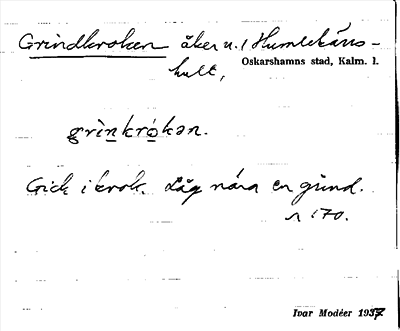 Grindkroken åker u. / Humlekärrs-
hult, Oskarshamns stad, Kalm. l.
grìnkrókən.
Gick i krok. Låg nära en grind.
n 170.
Ivar Modéer 1937